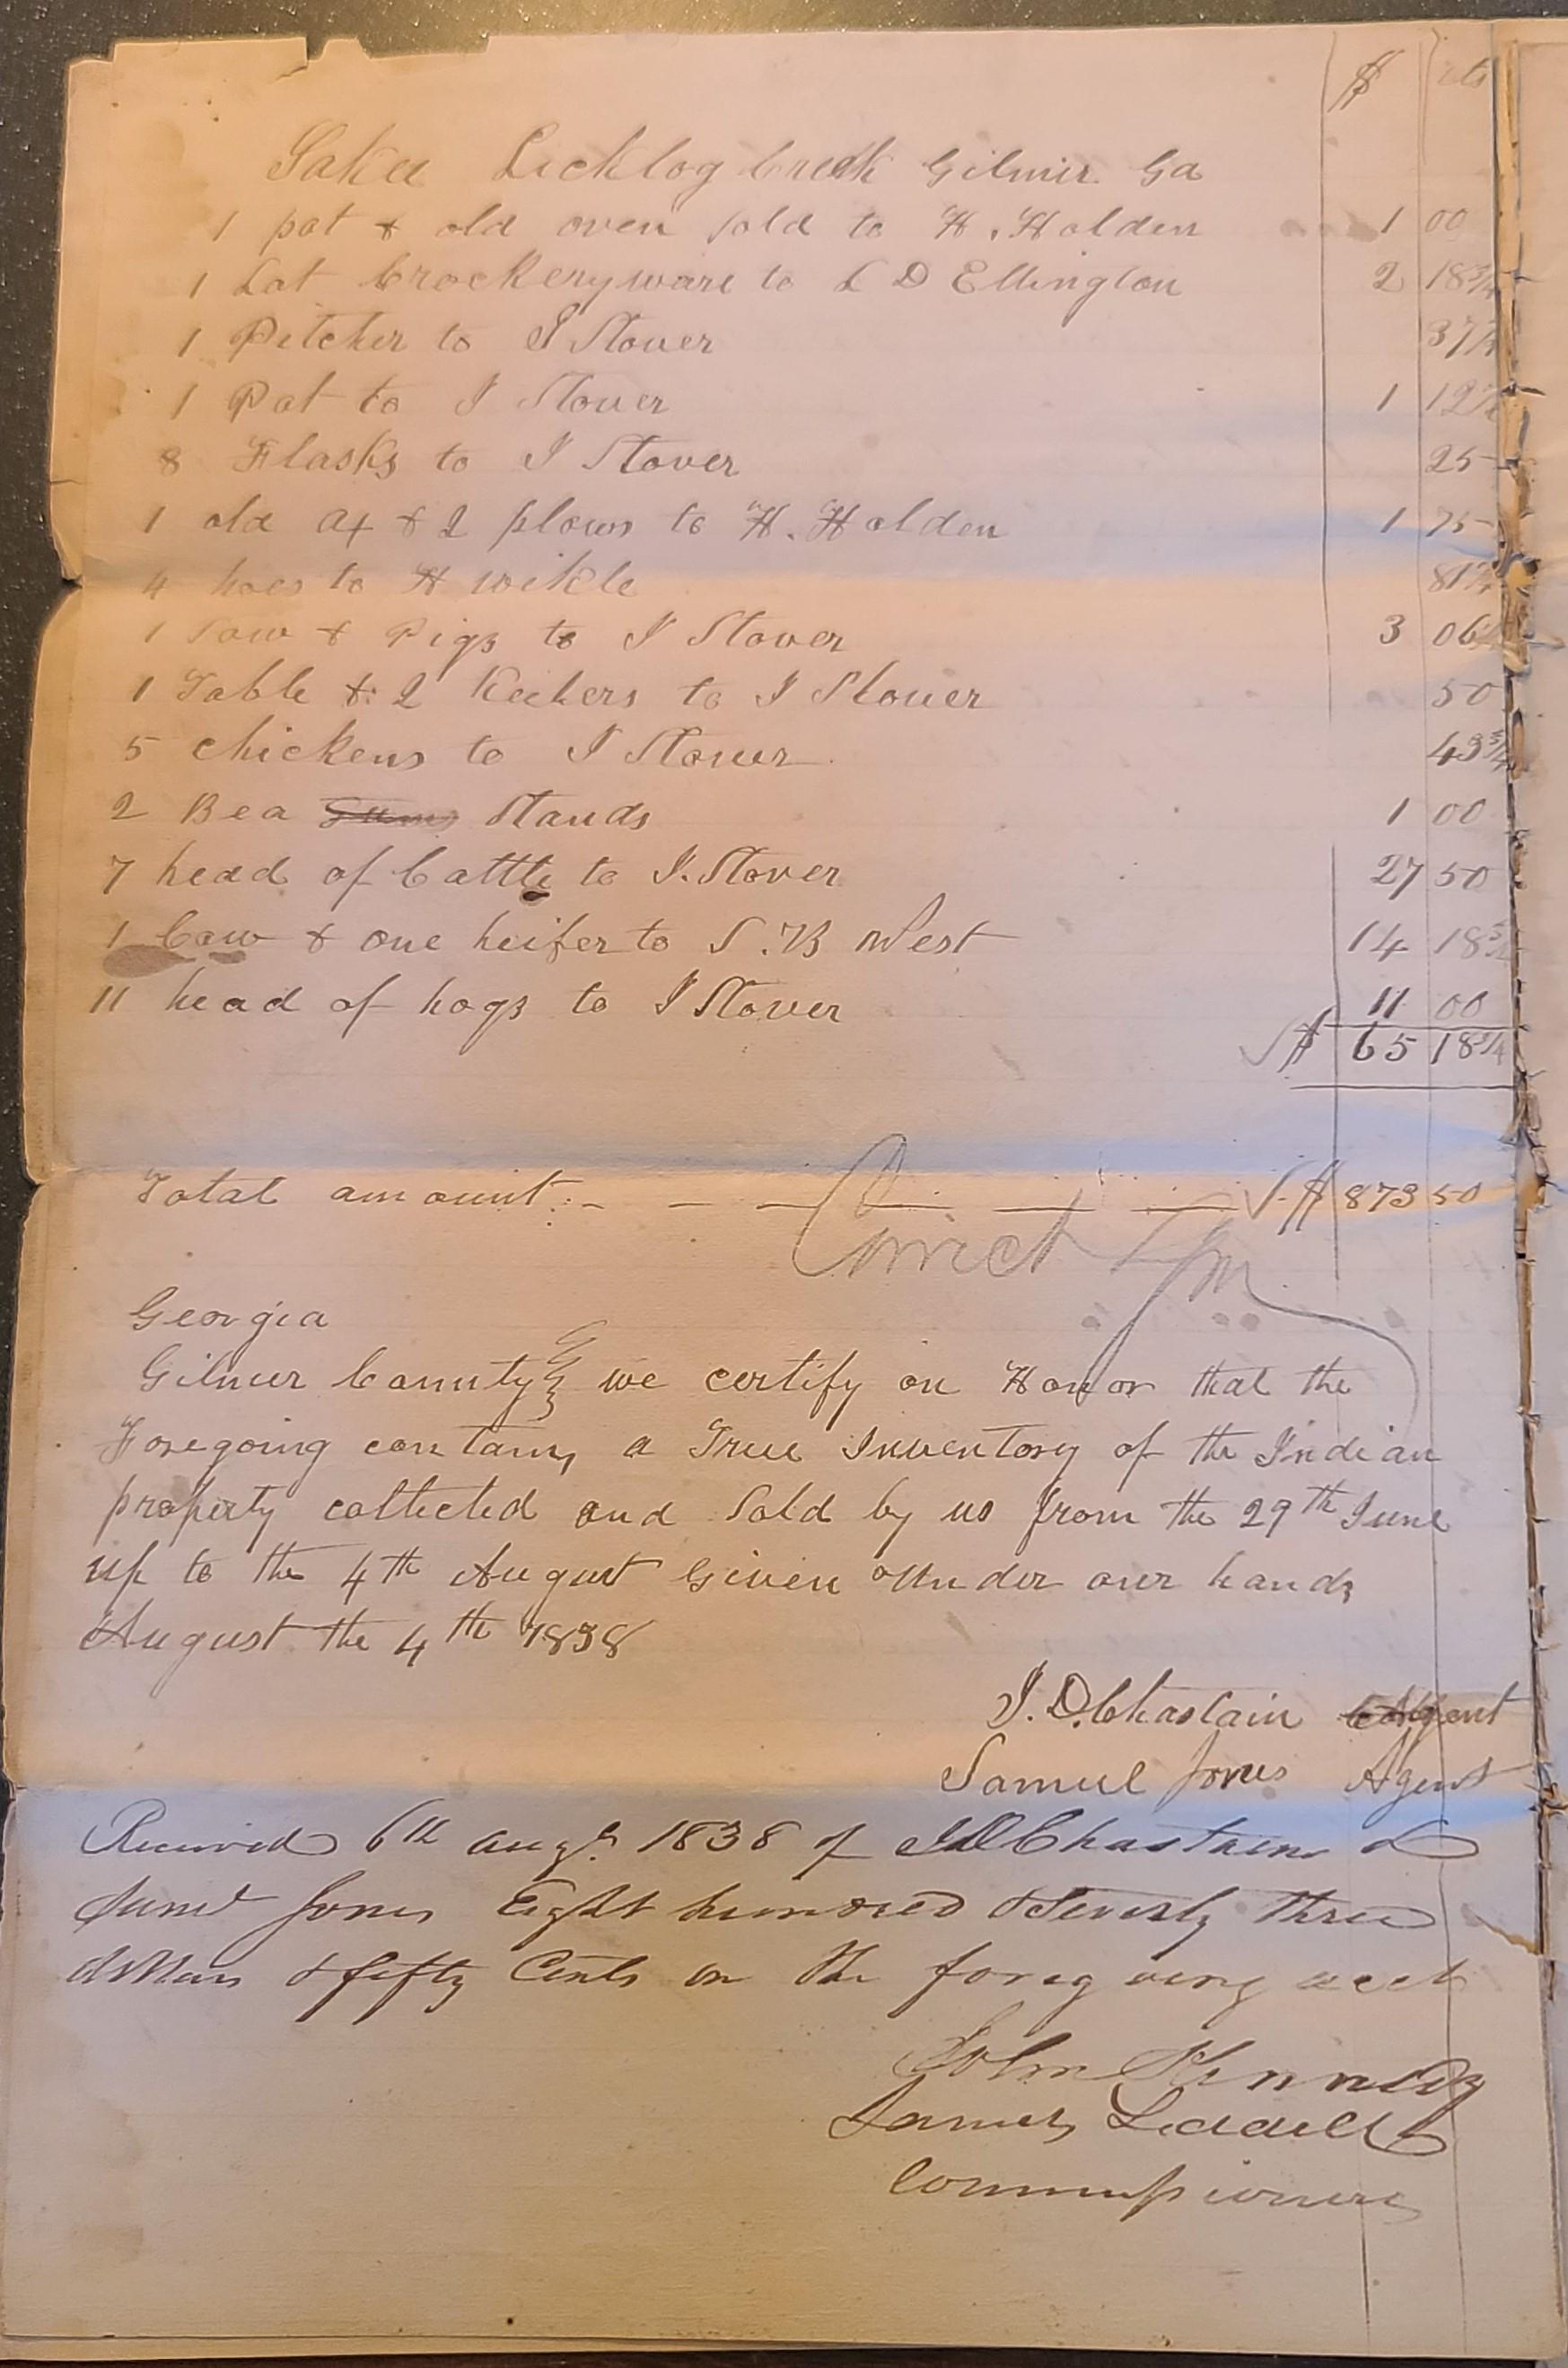 $ cts
Sakee Licklog Creek Gilmer Ga
1 pot & old oven sold to H. Holden 1 00
1 Lot Crockeryware to L D Ellington 2 18 3/4
1 Pitcher to I Stover 37 1/2
1 Pot to I Stover 1 12 1/2
8 Flasks to I Stover 25
1 old ax & 2 plows to H. Holden 1 75
4 hoes to H wikle 81 1/4
1 Sow & Pigs to I Stover 3 06 1/4
1 Table & 2 Keelers to I Stover 50
5 chickens to I Stover 43 3/4
2 Bea Gums Stands 1 00
7 head of Cattle to I. Stover 27 50
1 Cow & one heifer to S. B West 14 18 3/4
11 head of hogs to I Stover 11 00
$ 65 18 3/4
Total amount $ 873 50
Correct
Georgia
Gilmer County we certify on Honor that the
Foregoing contains a True Inventory of the Indian
property collected and Sold by us from the 29th June
up to the 4th August Given under our hands
August the 4th 1838
J. D. Chastain Agent
Samuel Jones Agent
Received 6th augt. 1838 of JD Chastain &
Saml Jones Eight hundred & Seventy three
dollars & fifty Cents on the foregoing acct
John Kennedy
James Liddell
Commissioners